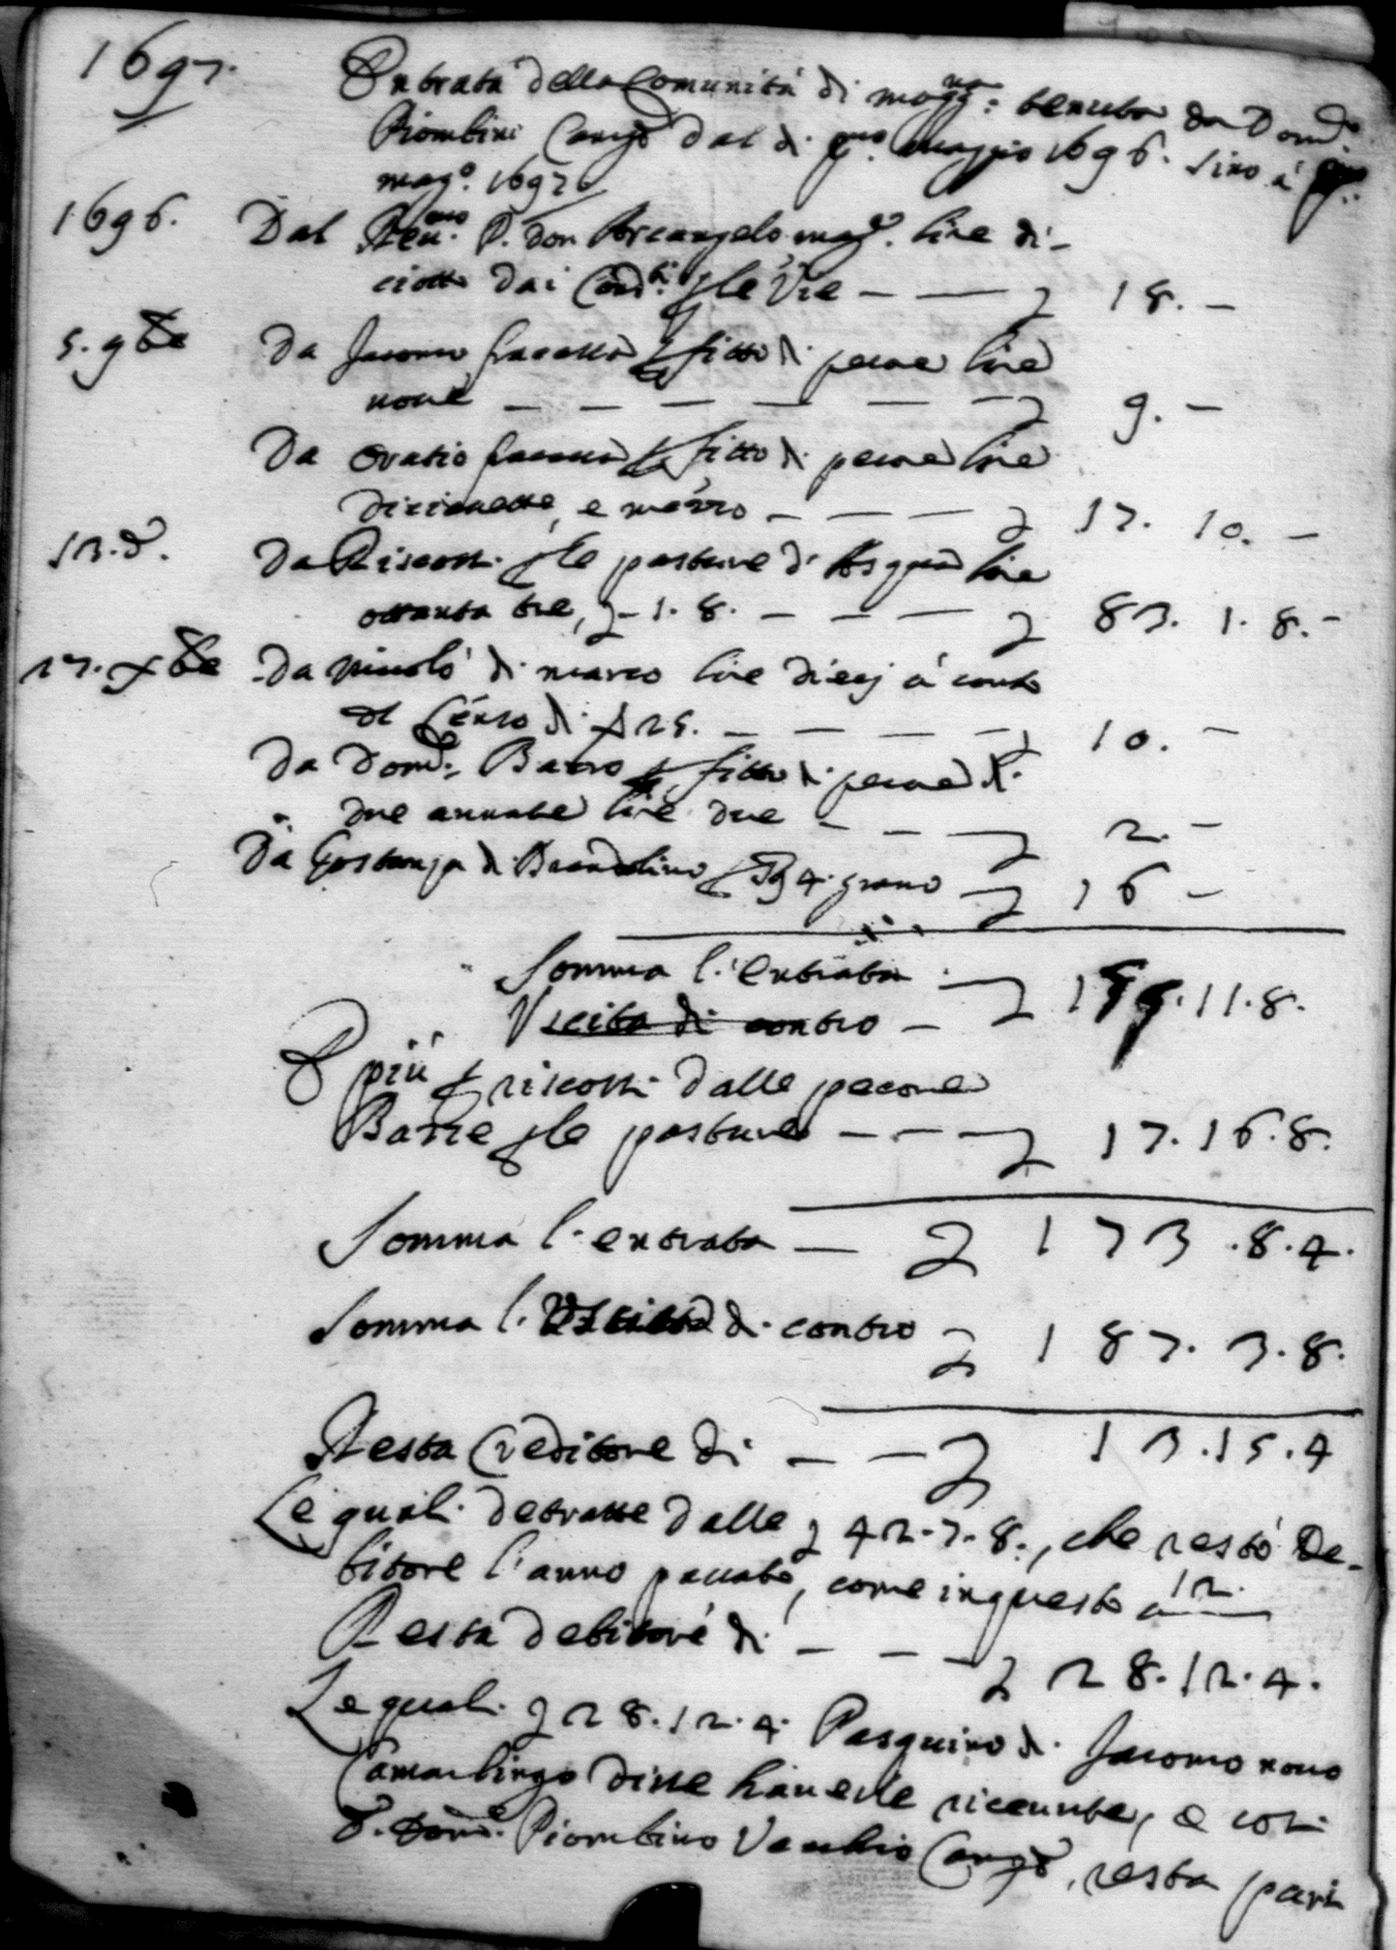 1697. Entrata della Comunità di magg.na: tenuta da Dom.co
Piombini Cam.go dal dì p.mo Maggio 1696. sino a' p.mo
mag.o 1697
1696. Dal Reu.mo P. Don Arcangelo mag.o lire di-
ciotto dai Cond.ri p le Vie — — 18. —
5. 9bre Da Jacomo fracasso p fitto di pecore lire
noue — — — — — — — 9. —
Da Oratio p fitto di pecore lire
diciasette, e mezzo — — — — 17. 10. —
13. d.o Da Riscossi p le pasture di lire
ottanta tre, 1. 8. — — — 83. 1. 8. —
27. Xbre Da Nicolò di marco lire dieci à conto
del Censo di 25. — — — — — 10. —
Da Dom.co p fitto di pecore di
due annate lire due — — — 2. —
Da Gostanza di Brandolino p 4. grano — 16 —
Somma l'entrata — 155. 11. 8.
Vscita di contro —
E più p riscossi dalle pecore
p le pasture — — — 17. 16. 8.
Somma l'entrata — 173. 8. 4.
Somma l'Vscita di contro 187. 3. 8.
Resta Creditore di — — 13. 15. 4
Le quali detratte dalle 42. 7. 8., che restò De-
bitore l'anno passato, come in questo à 12.
Resta debitore di — — — 28. 12. 4.
Le quali 28. 12. 4. Pasquino di Jacomo nouo
Camarlingo disse hauerle riceuute, e così
d.o Dom.co Piombino Vecchio Cam.go, resta pari